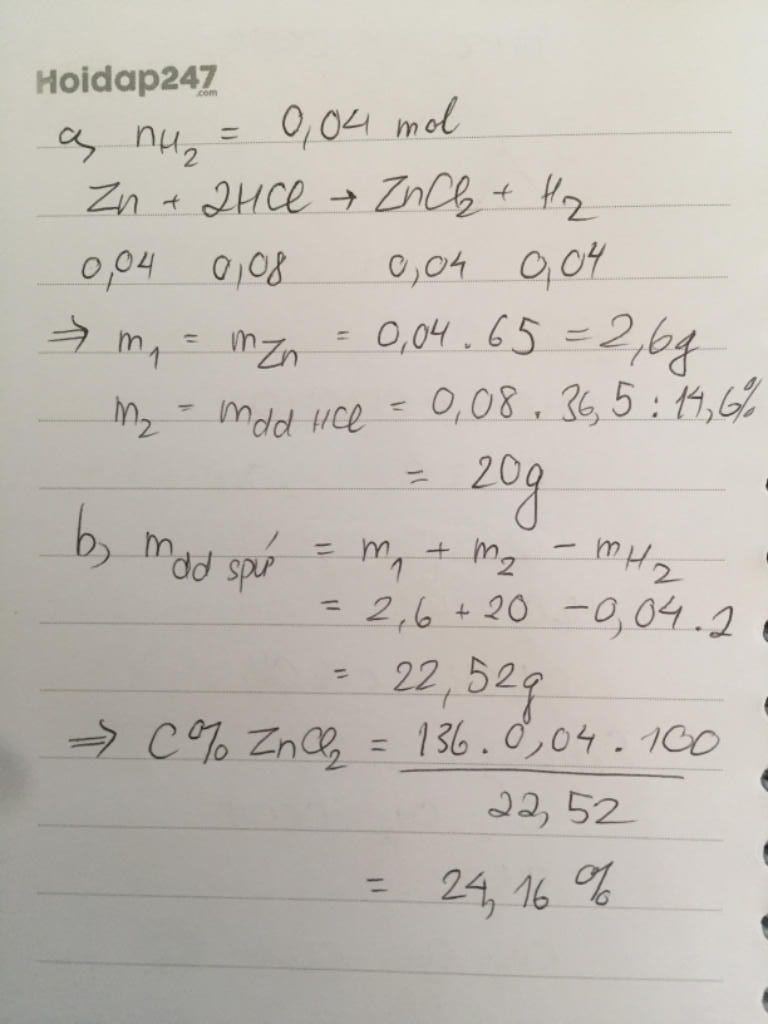 Hoidap247
.com
a, nH2 = 0,04 mol
Zn + 2HCl → ZnCl2 + H2
0,04 0,08 0,04 0,04
⇒ m1 = mZn = 0,04 . 65 = 2,6g
m2 = mdd HCl = 0,08 . 36,5 : 14,6%
= 20g
b, mdd spứ = m1 + m2 - mH2
= 2,6 + 20 - 0,04 . 2
= 22,52g
⇒ C% ZnCl2 = 136 . 0,04 . 100
22,52
= 24,16 %